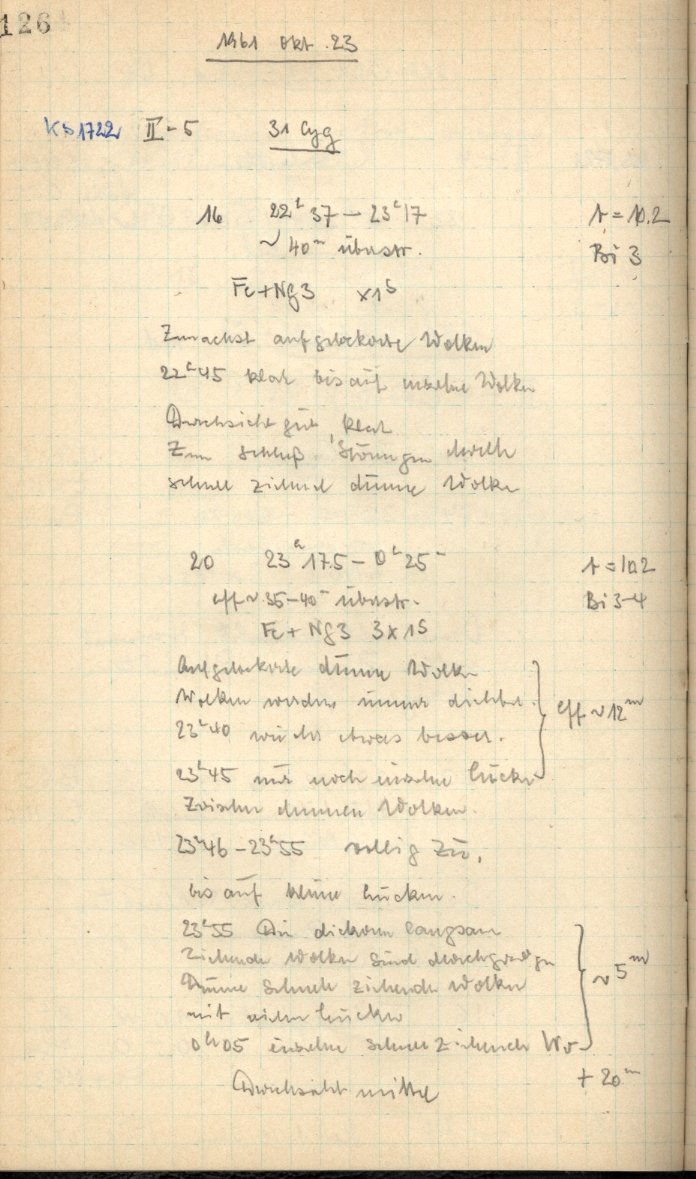 126
1961 Okt. 23
KS 1722 II-5 31 Cyg
16 22ʰ37 – 23ʰ17
~ 40ᵐ überstr. Bi 3
Fe+Ng3 x15
Zunächst aufgelockerte Wolken
22ʰ45 klar bis auf einzelne Wolken
Durchsicht gut, klar
Zum Schluß Störungen durch
schnell ziehend dünne Wolken
20 23ʰ17.5 – 0ʰ25ᵐ t = 10.2
eff ~ 35-40ᵐ überstr. Bi 3-4
Fe + Ng3 3x15
Aufgelockerte dünne Wolken
Wolken werden immer dichter. eff ~ 12ᵐ
23ʰ40 wieder etwas besser.
23ʰ45 nur noch einzelne Lücken
zwischen dünnen Wolken.
23ʰ46 – 23ʰ55 völlig zu,
bis auf kleine Lücken.
23ʰ55 Die dickeren langsam
ziehende Wolken sind durchgezogen
Dünne schnell ziehende Wolken ~ 5ᵐ
mit vielen Lücken
0ʰ05 einzelne schnell ziehende Wo
+ 20ᵐ
Durchsicht mittel